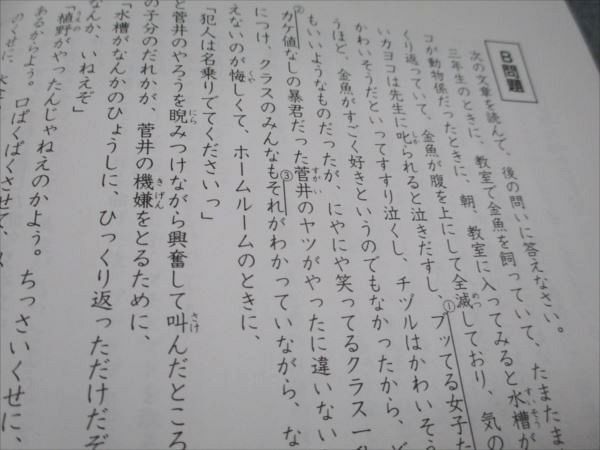 B問題
次の文章を読んで、後の問いに答えなさい。
三年生のときに、教室で金魚を飼っていて、たまたま
コが動物係だったときに、朝、教室に入ってみると水槽が
くり返っていて、金魚が腹を上にして全滅しており、気の
いカヨコは先生に叱られると泣きだすし、①ブッてる女子た
かわいそうだといってすすり泣くし、チヅルはかわいそう
うほど、金魚がすごく好きというのでもなかったから、ど
もいいようなものだったが、にやにや笑ってるクラス一
②カケ値なしの暴君だった菅井のヤツがやったに違いない
につけ、クラスのみんなも③それがわかっていながら、な
えないのが悔しくて、ホームルームのときに、
「犯人は名乗りでてくださいっ」
と菅井のやろうを睨みつけながら興奮して叫んだところ
の子分のだれかが、菅井の機嫌をとるために、
「水槽がなんかのひょうしに、ひっくり返っただけだぞ
なんか、いねえぞ」
「植野がやったんじゃねえのかよう。ちっさいくせに、
あるからよう。口ぱくぱくさせて、
のくせに、